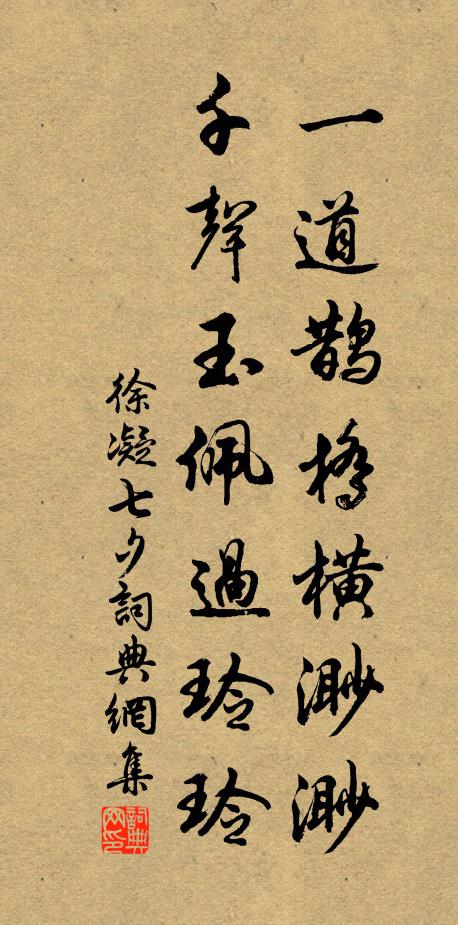 一道鵲橋橫渺渺
千聲玉佩過玲玲
徐凝七夕詞典網集
詞典网印